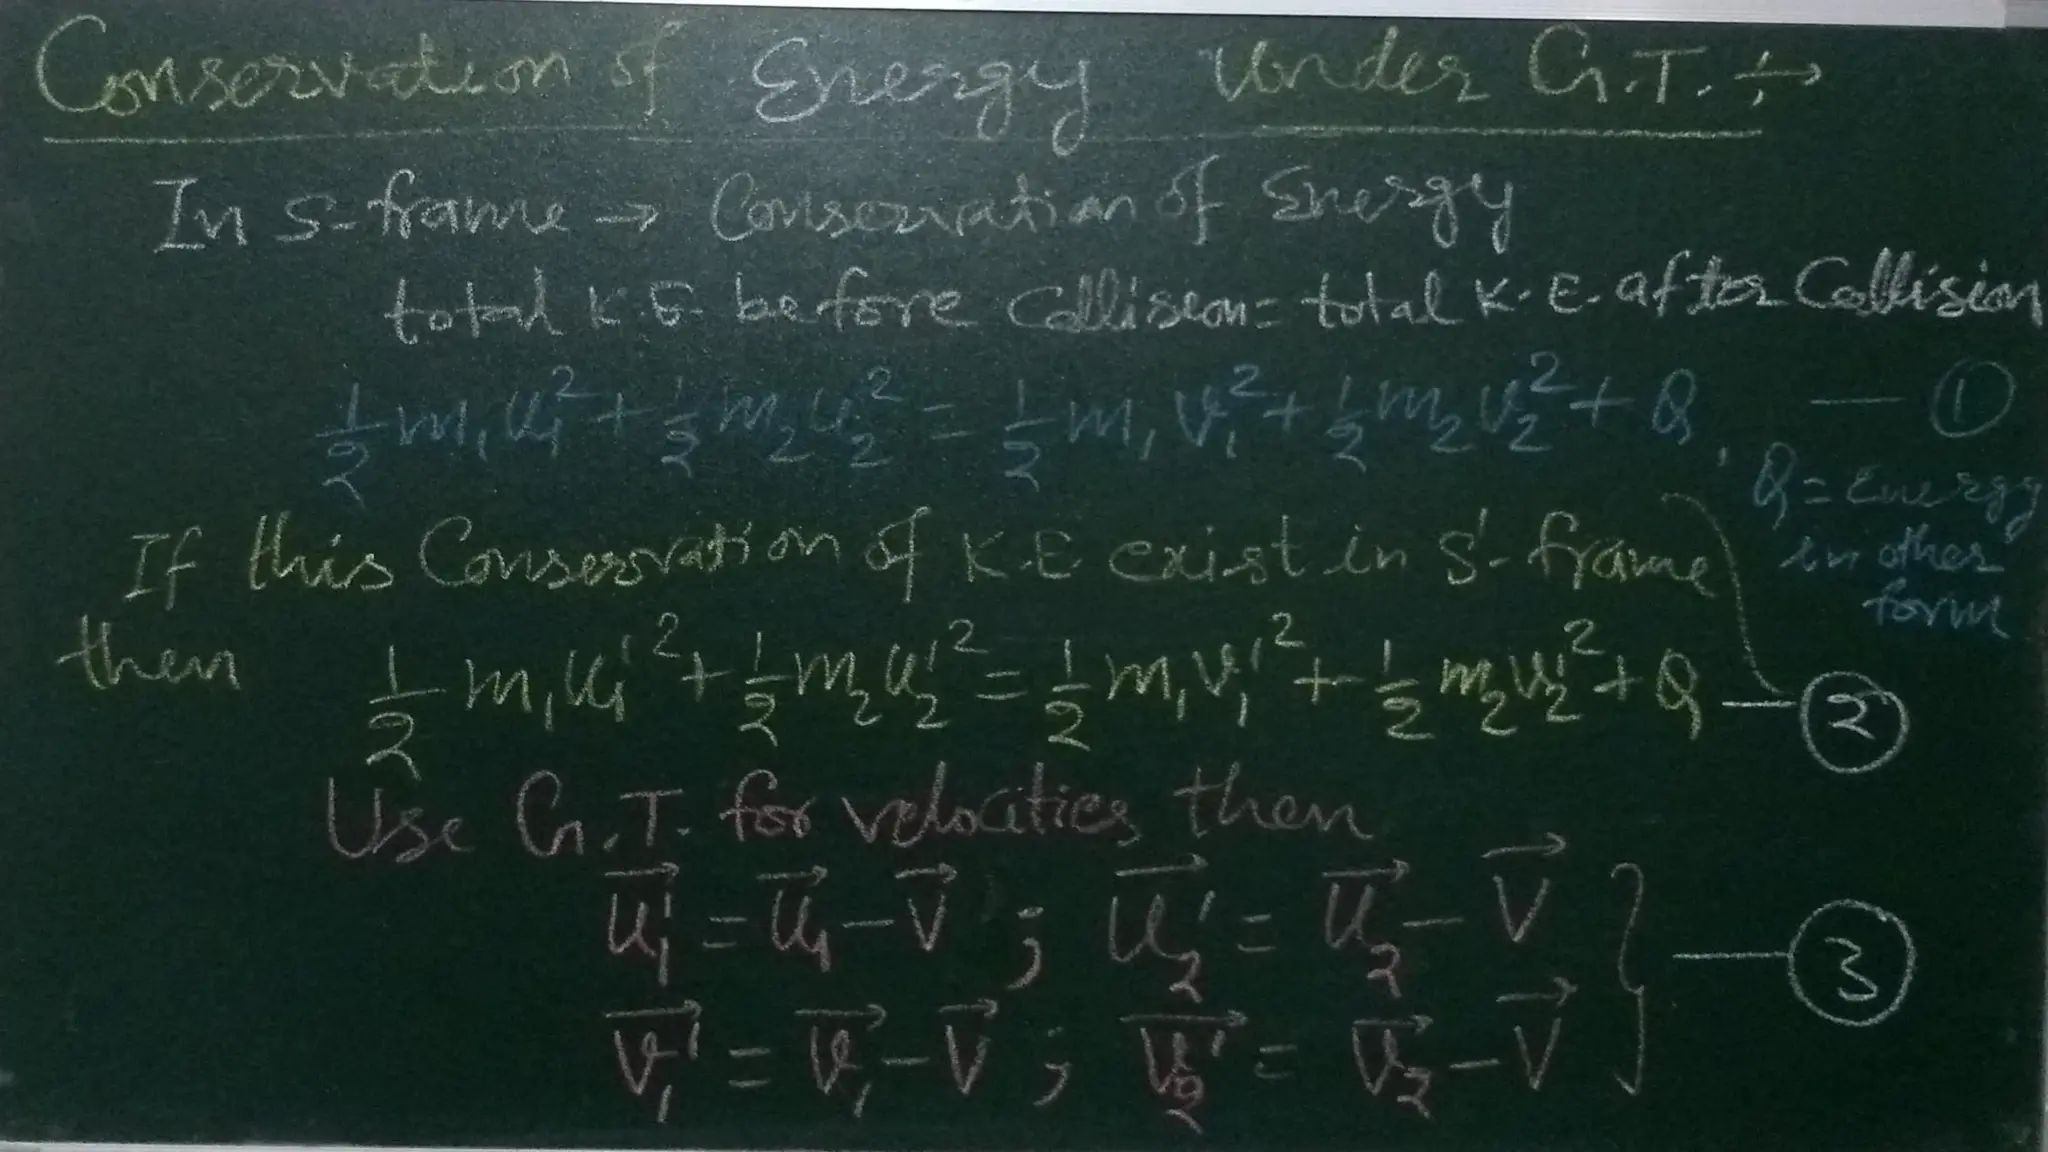 Conservation of Energy Under G.T. ÷→
In S-frame → Conservation of Energy
total K.E. before Collision = total K.E. after Collision
1/2 m₁u₁² + 1/2 m₂u₂² = 1/2 m₁v₁² + 1/2 m₂v₂² + Q — ①
Q = Energy
in other
form
If this Conservation of K.E exist in S'-frame
then 1/2 m₁u₁'² + 1/2 m₂u₂'² = 1/2 m₁v₁'² + 1/2 m₂v₂'² + Q — ②
Use G.T. for velocities then
u⃗₁' = u⃗₁ − V⃗ ; u⃗₂' = u⃗₂ − V⃗
v⃗₁' = v⃗₁ − V⃗ ; v⃗₂' = v⃗₂ − V⃗ } — ③